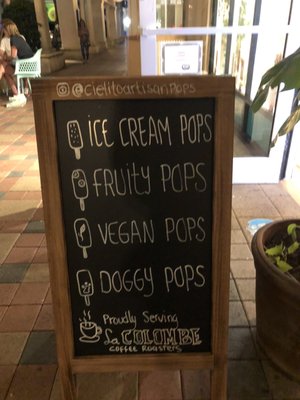 @cielitoartisanpops
ICE CREAM POPS
FRUITY POPS
VEGAN POPS
DOGGY POPS
Proudly Serving
La COLOMBE
COFFEE ROASTERS